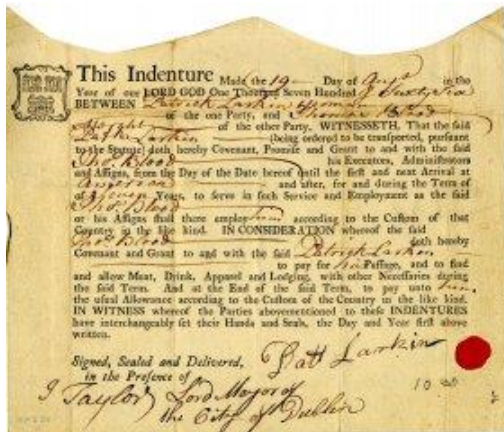 This Indenture Made the 19 Day of Augt in the
Year of our LORD GOD One Thousand Seven Hundred & Sixty Six
BETWEEN Patrick Larkin Yeoman
of the one Party, and Thomas Blood
of the other Party, WITNESSETH, That the said
Patk Larkin (being ordered to be transported, pursuant
to the Statute) doth hereby Covenant, Promise and Grant to and with the said
Thos Blood his Executors, Administrators
and Assigns, from the Day of the Date hereof until the first and next Arrival at
America and after, for and during the Term of
of Seven Years, to serve in such Service and Employment as the said
Thos Blood
or his Assigns shall there employ him according to the Custom of that
Country in the like kind. IN CONSIDERATION whereof the said
Thos Blood doth hereby
Covenant and Grant to and with the said Patrick Larkin
to pay for his Passage, and to find
and allow Meat, Drink, Apparel and Lodging, with other Necessaries during
the said Term. And at the End of the said Term, to pay unto him
the usual Allowance according to the Custom of the Country in the like kind.
IN WITNESS whereof the Parties abovementioned to these INDENTURES
have interchangeably set their Hands and Seals, the Day and Year first above
written.
Signed, Sealed and Delivered,
in the Presence of
Patt Larkin
J Taylor Lord Mayor of
the City of Dublin